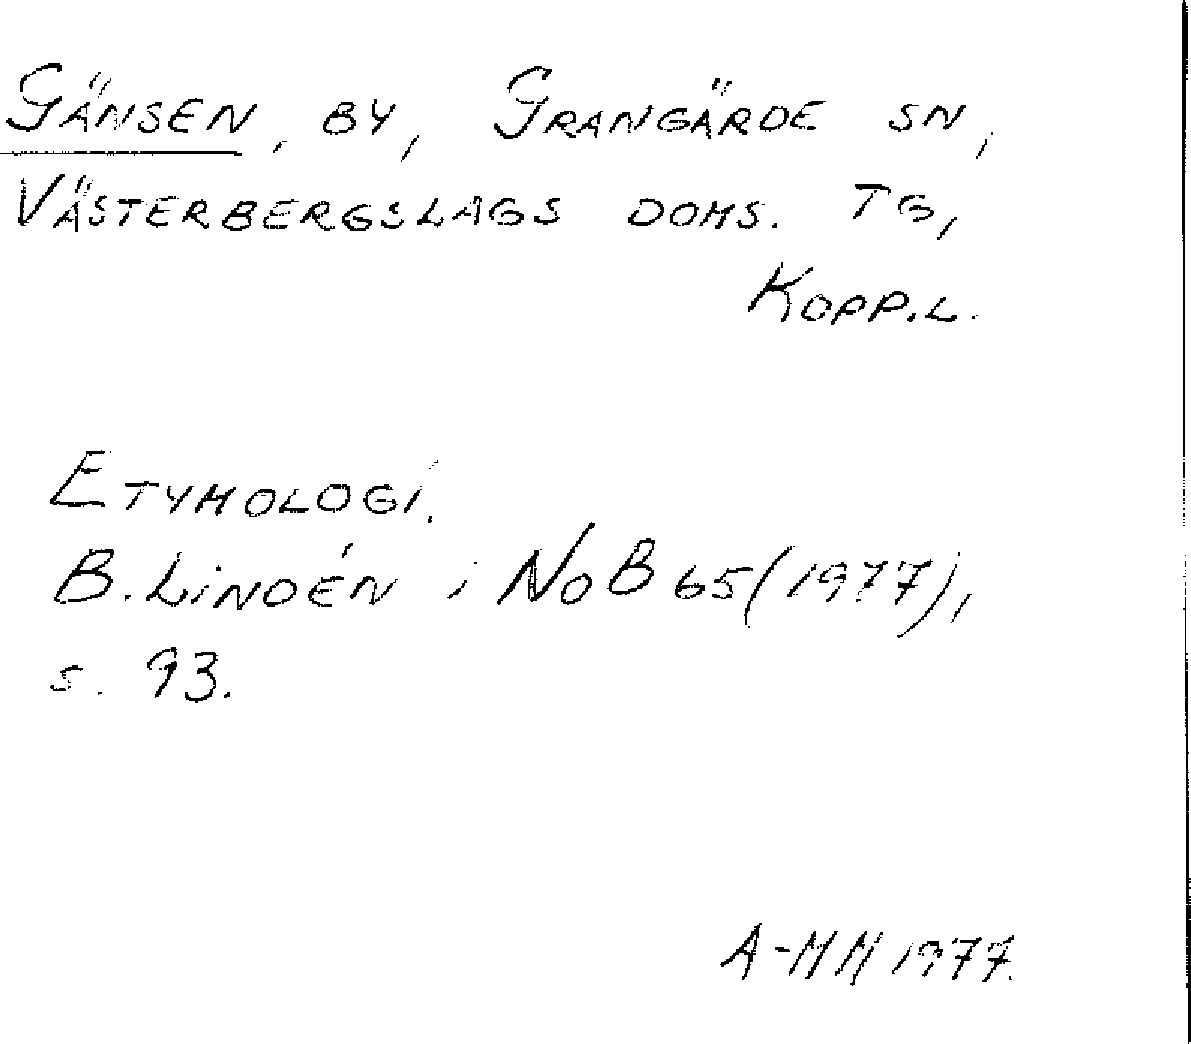 Gänsen, by, Grangärde sn,
Västerbergslags doms. tg,
Kopp.l.
Etymologi.
B. Lindén i NoB 65 (1977),
s. 93.
A-MM 1977.